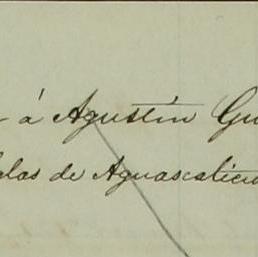 á Agustín Gu
las de Aguascalien